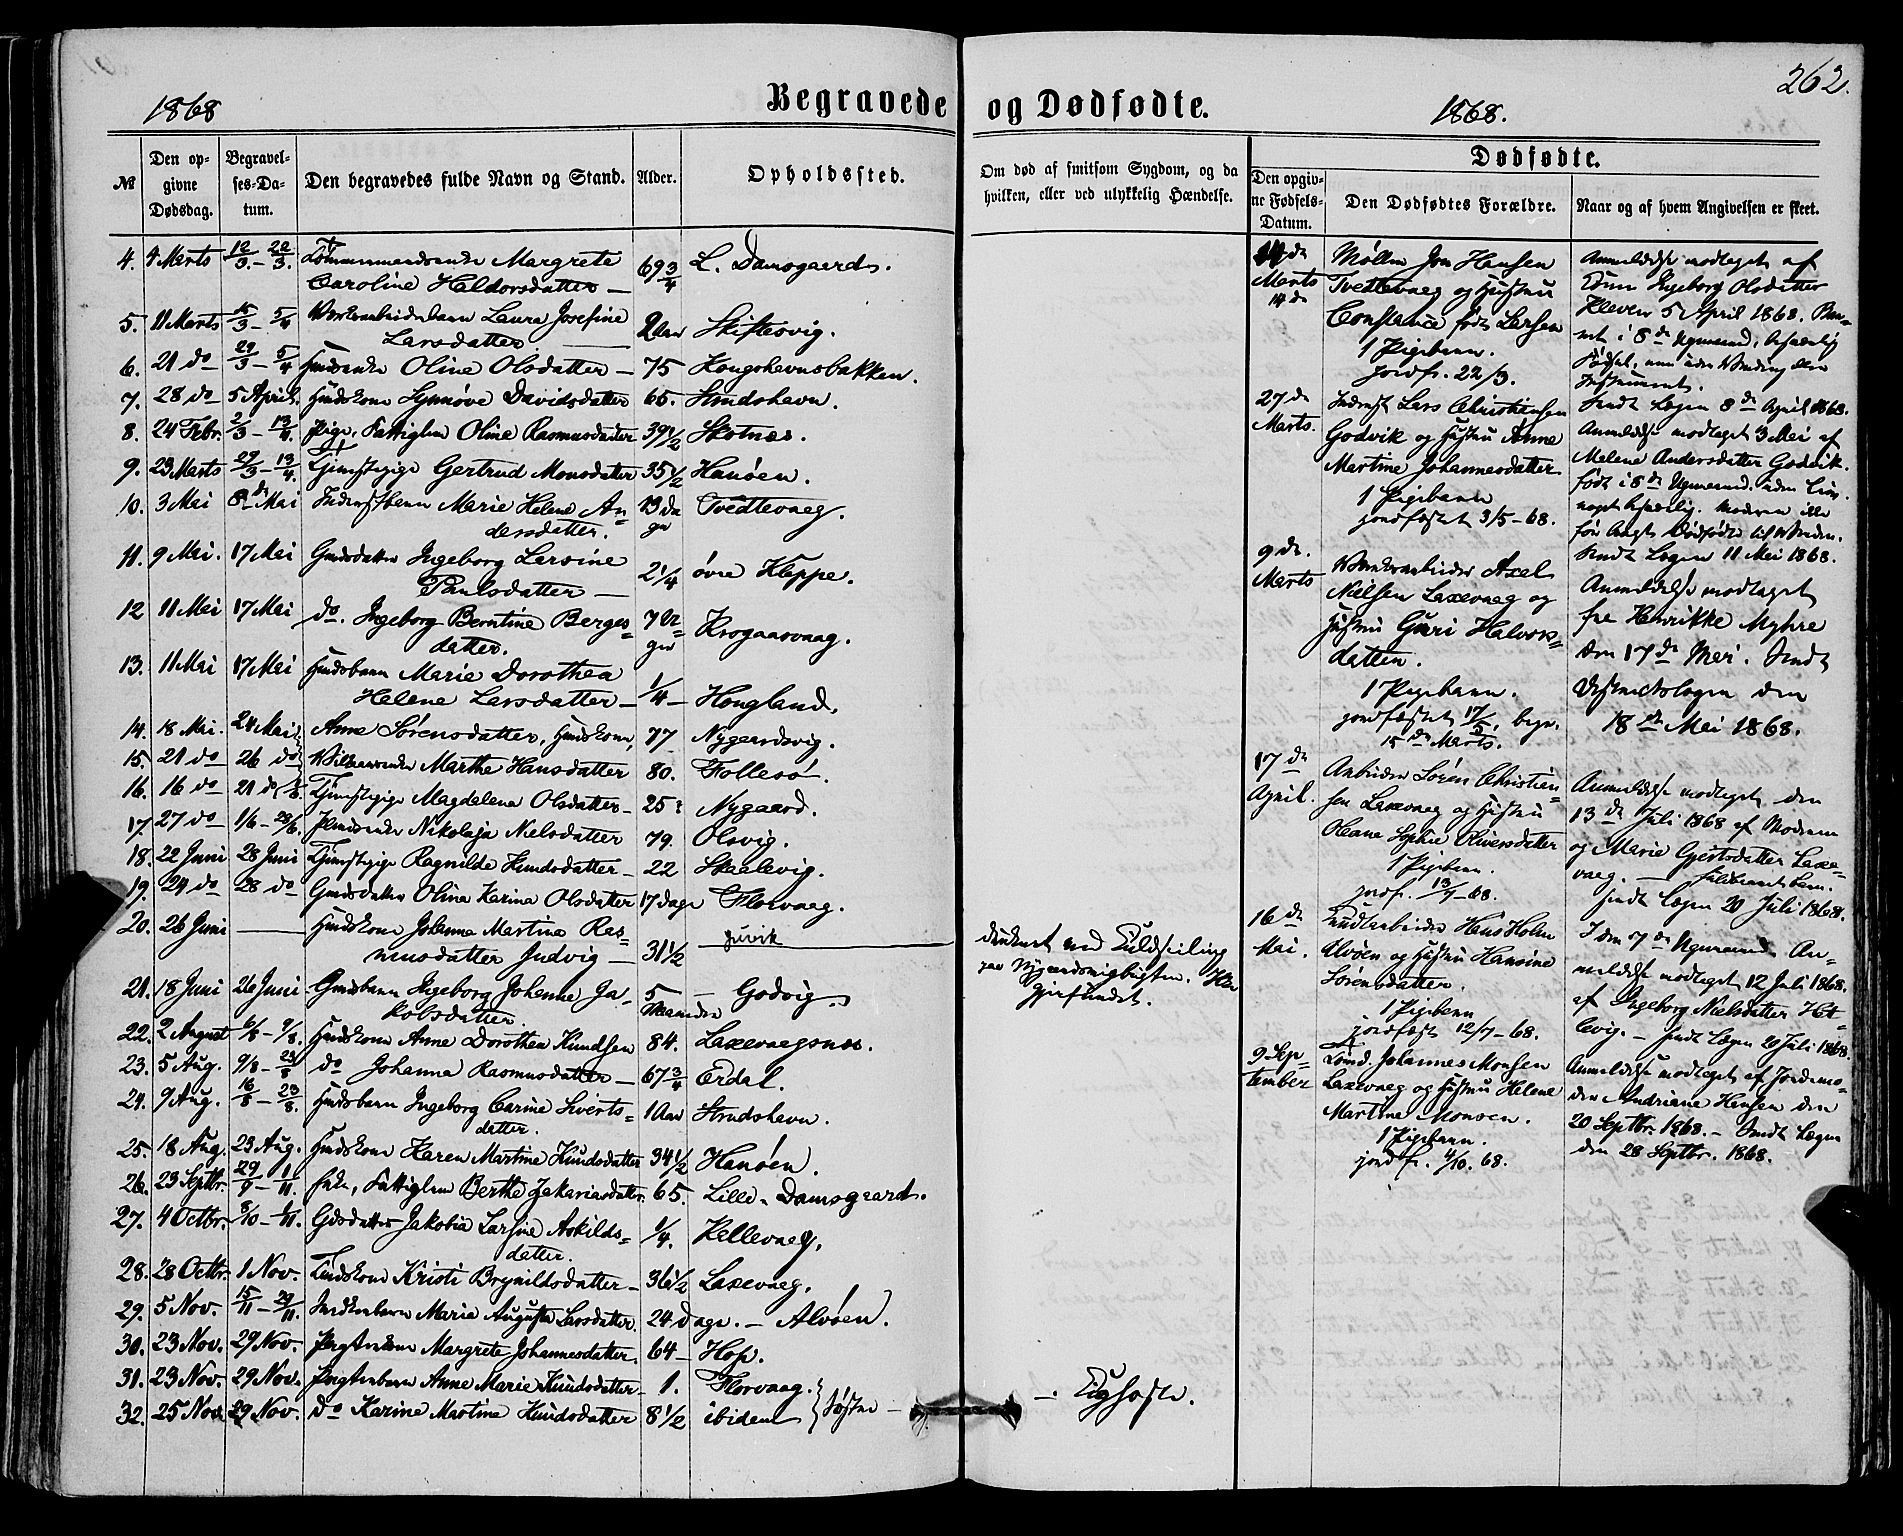 262.
1868
Begravede og Dødfødte.
1868.
Dødfødte.
№
Den opgivne Dødsdag.
Begravelses-Datum.
Den begravedes fulde Navn og Stand.
Alder.
Opholdssted.
Om død af smitsom Sygdom, og da hvilken, eller ved ulykkelig Hændelse.
Den opgivne Fødsels-Datum.
Den Dødfødtes Forældre.
Naar og af hvem Angivelsen er skeet.
4. 4 Marts 12/3 - 22/3. Margrete 69 3/4 L. Damsgaard.
Caroline Haldorsdatter —
5. 11 Marts 15/3 - 5/4 Laura Josefine 2 Aar Skiftesvig.
Larsdatter.
6. 21 do 29/3 - 5/4 Oline Olsdatter — 75 Kongshavnsbakken.
7. 28 do 5 April. Huuskone Synnøve Davidsdatter 65. Strudshavn.
8. 24 Febr. 2/3 - 13/4. Pige, Fattiglem Oline Rasmusdatter 39 1/2 Skotnes.
9. 23 Marts 29/3 - 13/4. Tjenstepige Gertrud Monsdatter 35 1/2 Hanøen.
10. 3 Mai 8de Mai Inderstbarn Marie Helene An- 13 Da Tvedtevaag.
dersdatter. ger
11. 9 Mai. 17 Mai Ingeborg Larsine 2 1/4 øvre Kleppe.
Paulsdatter —
12 11 Mai 17 Mai do. Ingeborg Berntine Berges- 7 Uger Krogaasvaag.
datter.
13. 11 Mai 17 Mai Huusbarn Marie Dorothea
Helene Larsdatter — 1/4 — Hougland.
14. 18 Mai. 24 Mai Anne Sørensdatter, Huuskone, 77 Nygaardsvig.
15. 21 do 26 do Marthe Hansdatter 80. Follesø.
16. 16 do 21 do Tjenstepige Magdalena Olsdatter 25 Nygaard.
17. 27 do 1/6 - 28/6. Nikolaja Nielsdatter 79. Olsvig.
18. 22 Juni 28 Juni Tjenstepige Ragnilde Knudsdatter — 22 Skaalevig.
19. 24 do 28 do Olina Karina Olsdatter 17 dage Florvaag.
20. 26 Juni — Huuskone Johanna Martina Ras-
musdatter Judvig — 31 1/2 Juvik
21. 18 Juni 26 Juni Ingeborg Johanne Ja- 5 — Godvig.
kobsdatter. Maaneder
22. 2 August 6/8 - 9/8. Huuskone Anne Dorothea Knudsen 84. Laxevaagsnes.
23. 5 Aug. 9/8 - 23/8 do Johanna Rasmusdatter — 67 3/4 Erdal.
24. 9 Aug. 16/8 - 23/8. Huusbarn Ingeborg Carine Siverts- 1 Aar Strudshavn.
datter.
25. 18 Aug. 23 Aug. Huuskone Karen Martine Knudsdatter 34 1/2 Hanøen.
26. 23 Septbr. 29/9 - 1/11. Enke, Fattiglem Berthe Zakariasdatter. 65. Lille-Damsgaard.
27. 4 Octbr. 8/10 - 1/11. Jakobia Larsine Askilds- 1/4. Kellevaag.
datter.
28. 28 Octbr. 1 Nov. Kristi Brynildsdatter — 36 1/2 Laxevaag.
29. 5 Nov. 15/11 - 29/11. Marie Augusta Larsdatter. 24 Dage. — Alvøen.
30. 23 Nov. 29 Nov. Margrete Johannesdatter. 64 — Hop.
31. 23 Nov. 29 Nov. Anne Marie Knudsdatter — 1. Florvaag.
32. 25 Nov. 29 Nov. do Karine Martine Knudsdatter 8 1/2 ibidem Søstre —
druknet ved Kuldseiling
paa Nygaardsvigbugten.
gjenfundet.
— Kighoste.
14de Marts
14de
Møller Jon Hansen
Tvedtevaag og Hustru
Constance født Larsen
1 Pigebarn.
jordf. 22/3.
Anmeldelse modtaget af
Ingeborg Olsdatter
Kleven 5 April 1868. Bar-
net i 8de
Fødsel, uden
Instrument.
Sendt Lægen 8de April 1868.
27de
Marts.
Inderst Lars Christiansen
Godvik og Hustru Anne
Martine Johannesdatter
1 Pigebarn
jordfæstet 3/5-68.
Anmeldelse modtaget 3 Mai af
Melene Andersdatter Godvik.
født i 8de uden
Sendt Lægen 11 Mai 1868.
9de.
Marts
Axel
Nielsen Laxevaag og
Hustru Guri Halvors-
datter.
1 Pigebarn.
jordfæstet 17/5, begr.
15de Marts.
Anmeldelse modtaget
fra Henrikke Myhre
den 17de Mai. Sendt
Districtslægen den
18de Mai 1868.
17de
April.
Arbeider Søren Christian-
sen Laxevaag og Hustru
Oleane Sophie Sivertsdatter
1 Pigebarn.
jordf. 13/7-68.
Anmeldelse modtaget den
13de Juli 1868 af Moderen
og Marie Gjertsdatter Laxe-
vaag. — Fuldbaaret Barn.
Sendt Lægen 20 Juli 1868.
16de
Mai.
Hans Holm
Alvøen og Hustru Hansine
Sørensdatter.
1 Pigebarn
jordfæst 12/7-68.
I den 7de An-
meldelse modtaget 12 Juli 1868.
af Ingeborg Nielsdatter Het-
levig. — Sendt Lægen 20 Juli 1868.
9 Sep-
tember
Johannes Monsen
Laxevaag og Hustru Helene
Martine Monsen.
1 Pigebarn.
jordf. 4/10. 68.
Anmeldelse modtaget af Jordemo-
der Andriane Hansen den
20 Septbr. 1868. — Sendt Lægen
den 28 Septbr. 1868.